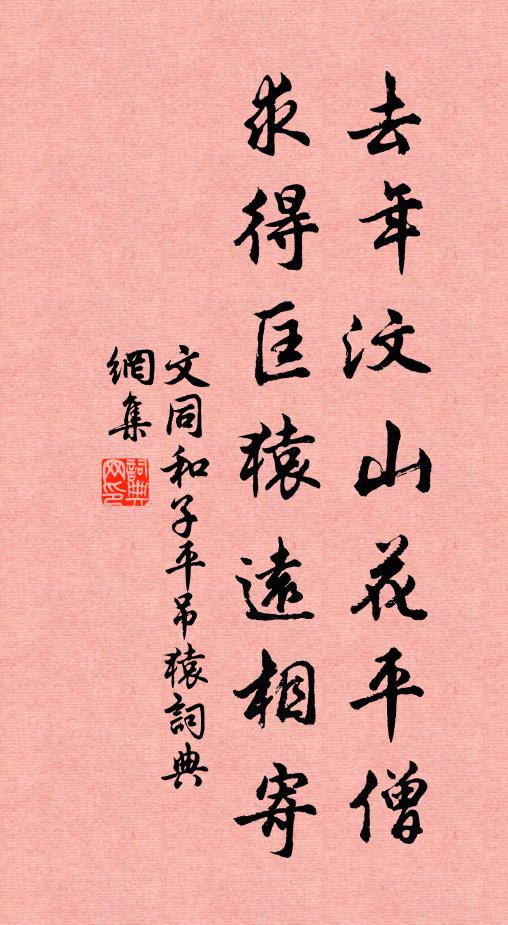 去年汶山花平僧
求得匡猿遠相寄
文同和子平吊猿詞典
網集
詞典
网印